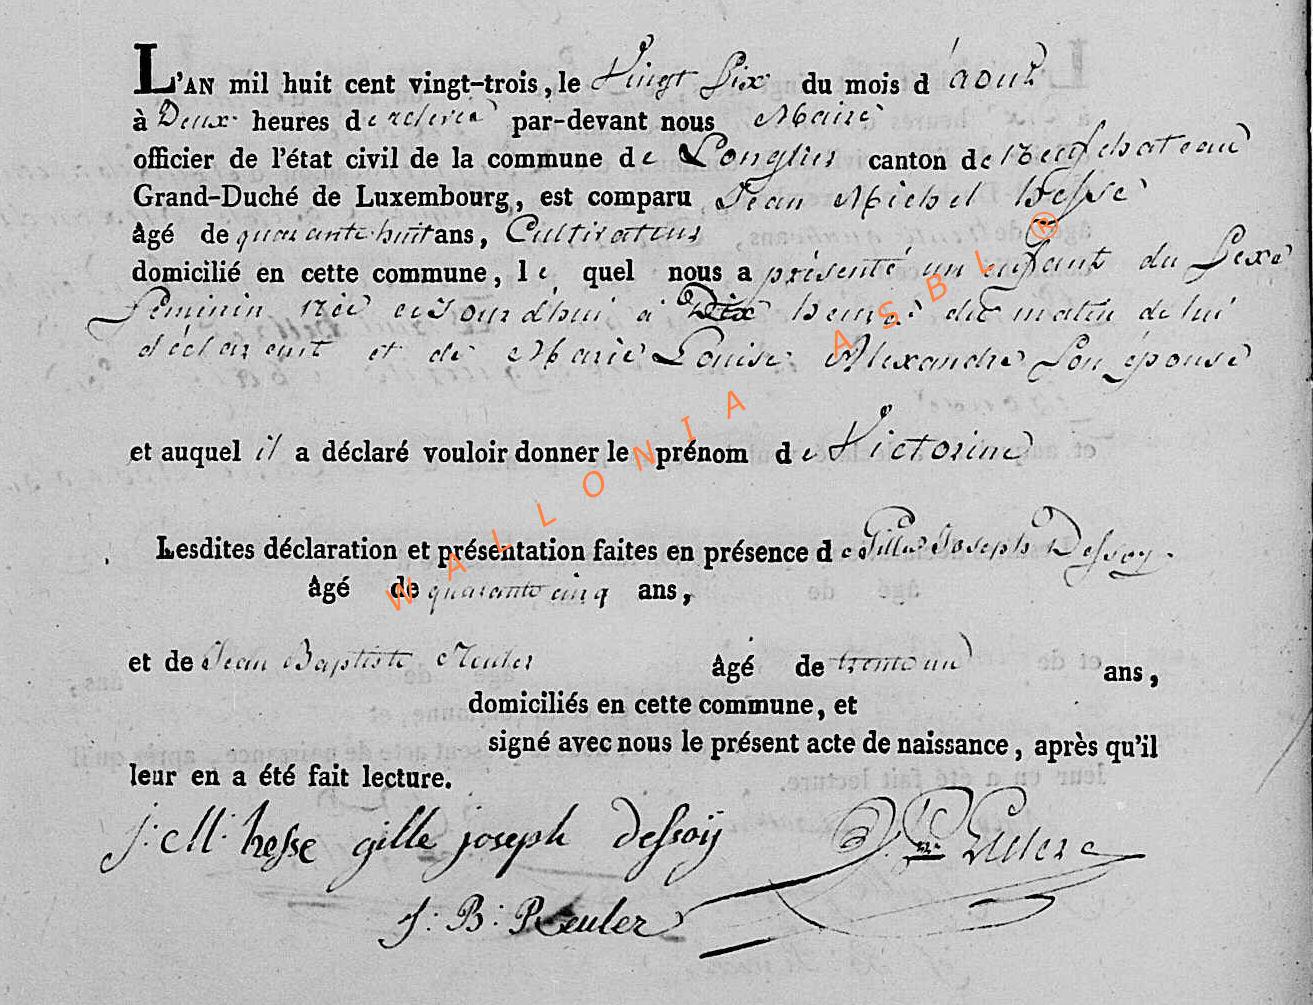 L'AN mil huit cent vingt-trois, le Vingt Six du mois d'aout
à Deux heures de relevée par-devant nous Maire
officier de l'état civil de la commune de Longlier canton de Neufchateau
Grand-Duché de Luxembourg, est comparu Jean Michel Hesse
âgé de quarante huit ans, Cultivateur
domicilié en cette commune, le quel nous a présenté un enfant du Sexe
feminin née aujourdhui à Dix heures du matin de lui
déclarant et de Marie Louise Alexandre son épouse
et auquel il a déclaré vouloir donner le prénom de Victorine
Lesdites déclaration et présentation faites en présence de Gille Joseph Dessoy
âgé de quarante cinq ans,
et de Jean Baptiste Reuler âgé de trente un ans,
domiciliés en cette commune, et
signé avec nous le présent acte de naissance, après qu'il
leur en a été fait lecture.
J: M: hesse gille joseph dessoij
J: B: Reuler
WALLONIA ASBL ®